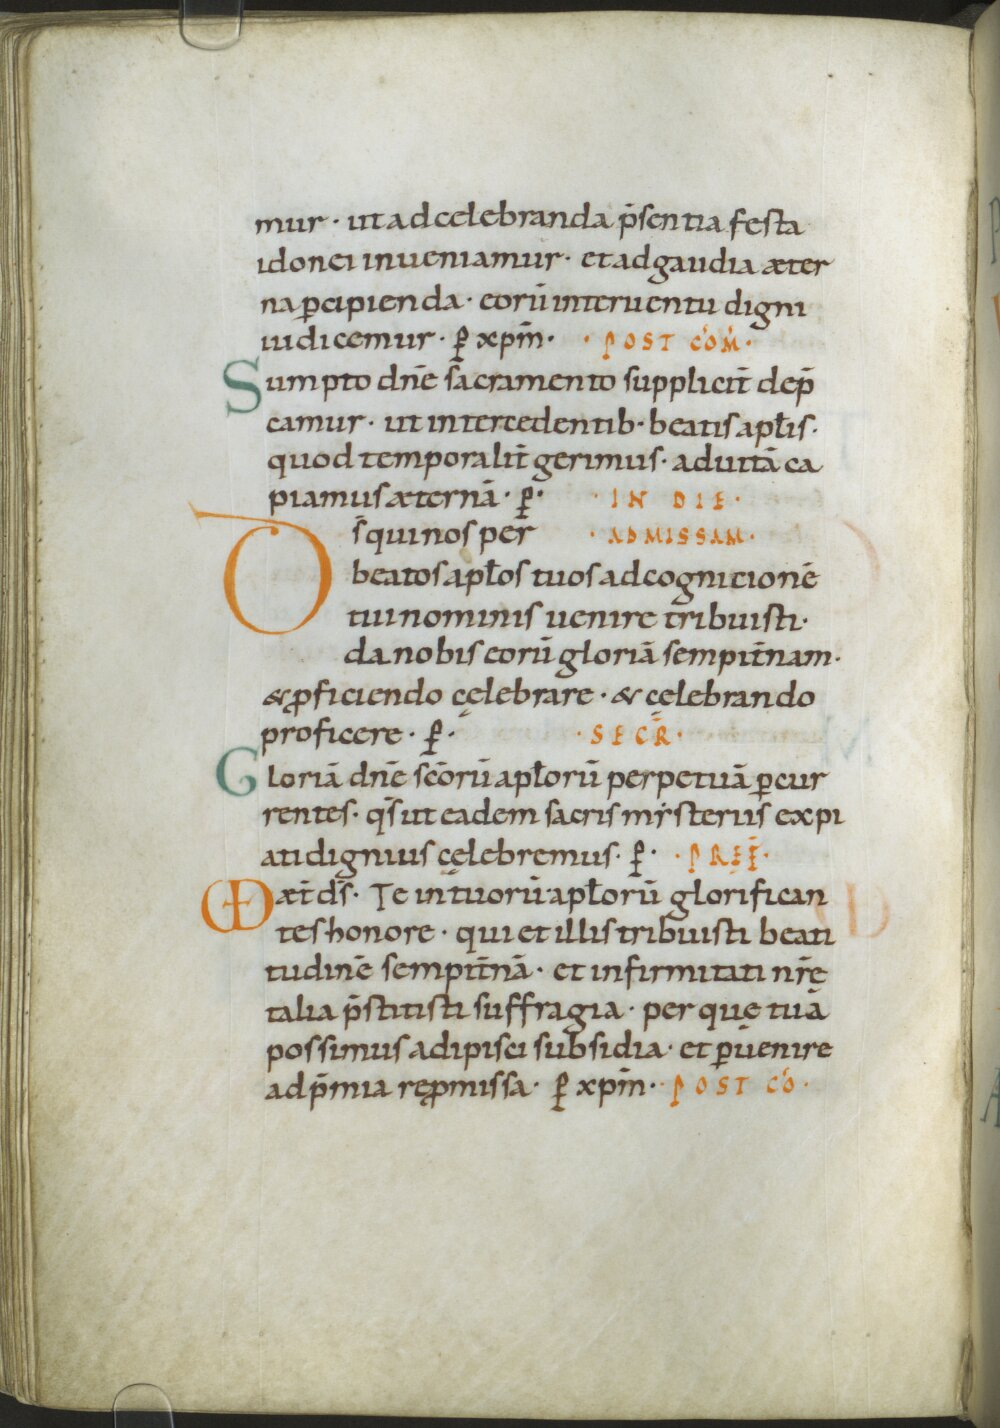 mur · ut ad celebranda p̄sentia festa
idonei inueniamur · et ad gaudia æter
na ꝑcipienda · eorū interuentu digni
iudicemur · ꝑ xp̄m · · POST CŌM ·
Sumpto dn̄e sācramento supplicit̄ dep̄
camur · ut intercedentib · beatis apłis ·
quod temporalit̄ gerimus · ad uitā ca
piamus æternā · ꝑ · · IN DIE ·
Ds̄ qui nos per · AD MISSAM ·
beatos apłos tuos ad cognitionē
tui nominis uenire tribuisti ·
da nobis eorū gloriā sempit̄nam ·
& ꝓficiendo cęlebrare · & cęlebrando
proficere · ꝑ · · SECR̄ ·
Gloriā dn̄e sc̄orū apłorū perpetuā ꝑcur
rentes · qs̄ ut eadem sacris mẏsteriis expi
ati dignius cęlebremus · ꝑ · · PREF̄ ·
VD æt̄ ds̄ · Te in tuorū apłorū glorifican
tes honore · qui et illis tribuisti beati
tudinē sempit̄nā · et infirmitati nr̄ę
talia p̄stitisti suffragia · per quę tuā
possimus adipisci subsidia · et ꝑuenire
ad p̄mia reꝓmissa · ꝑ xp̄m · · POST CŌ ·